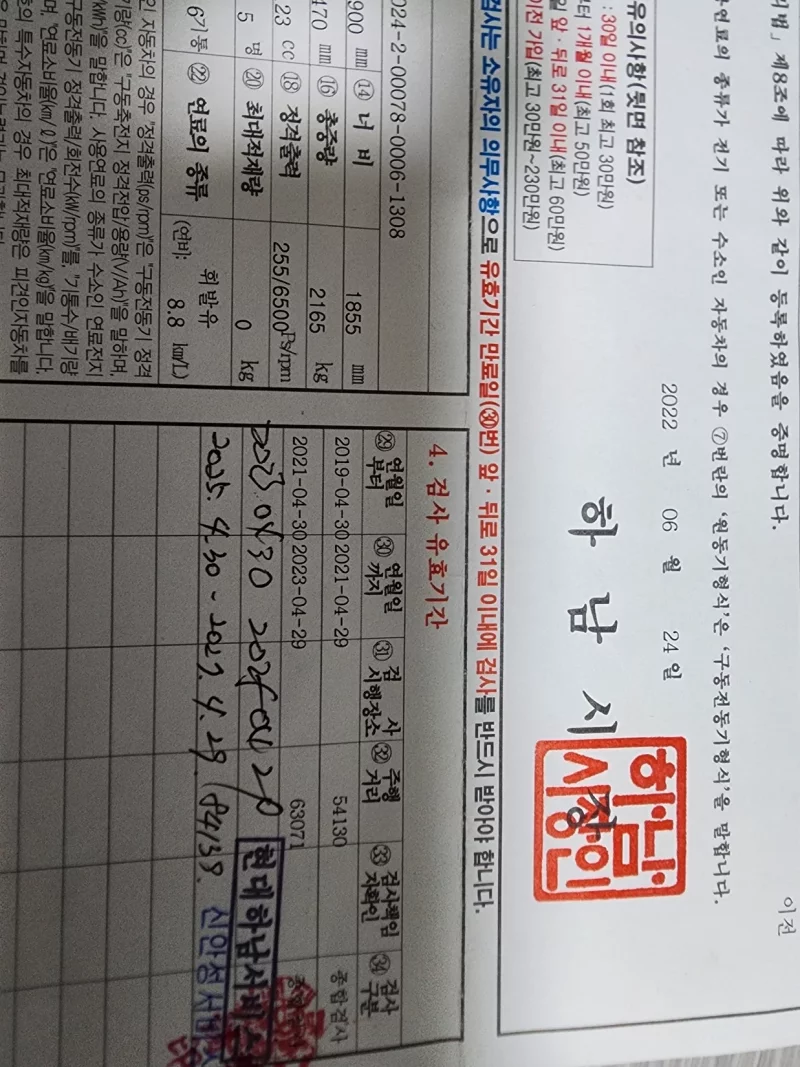 리법」 제8조에 따라 위와 같이 등록하였음을 증명합니다.
연료의 종류가 전기 또는 수소인 자동차의 경우 ⑦번란의 '원동기형식'은 '구동전동기형식'을 말합니다.
이전
2022 년 06 월 24 일
하 남 시 장
하남시장인
유의사항(뒷면 참조)
: 30일 이내(1회 최고 30만원)
터 1개월 이내(최고 50만원)
일 앞ㆍ뒤로 31일 이내(최고 60만원)
이전 가입(최고 30만원~230만원)
검사는 소유자의 의무사항으로 유효기간 만료일(㉚번) 앞ㆍ뒤로 31일 이내에 검사를 반드시 받아야 합니다.
024-2-00078-0006-1308
900 mm ⑭ 너 비 1855 mm
470 mm ⑯ 총중량 2165 kg
23 cc ⑱ 정격출력 255/6500Ps/rpm
5 명 ⑳ 최대적재량 0 kg
6기통 ㉒ 연료의 종류 휘발유
(연비: 8.8 km/L)
인 자동차의 경우 "정격출력(ps/rpm)"은 "구동전동기 정격
기량(cc)"은 "구동축전지 정격전압/용량(V/Ah)"을 말하며,
/kWh)"을 말합니다. 사용연료의 종류가 수소인 연료전지
구동전동기 정격출력/회전수(kW/rpm)"를, "기통수/배기량
며, "연료소비율(km/ℓ)"은 "연료소비율(km/kg)"을 말합니다.
의 특수자동차의 경우 최대적재량은 피견인자동차를
4. 검사 유효기간
㉙ 연월일 부터 ㉚ 연월일 까지 ㉛ 검 사 시행장소 ㉜ 주행 거리 ㉝ 검사책임 자확인 ㉞ 검사 구분
2019-04-30 2021-04-29 54130 종합검사
2021-04-30 2023-04-29 63071
2023 04 30 현대하남서비스
2025. 4. 30 - 2027. 4. 29. (84138. 신안성서비스